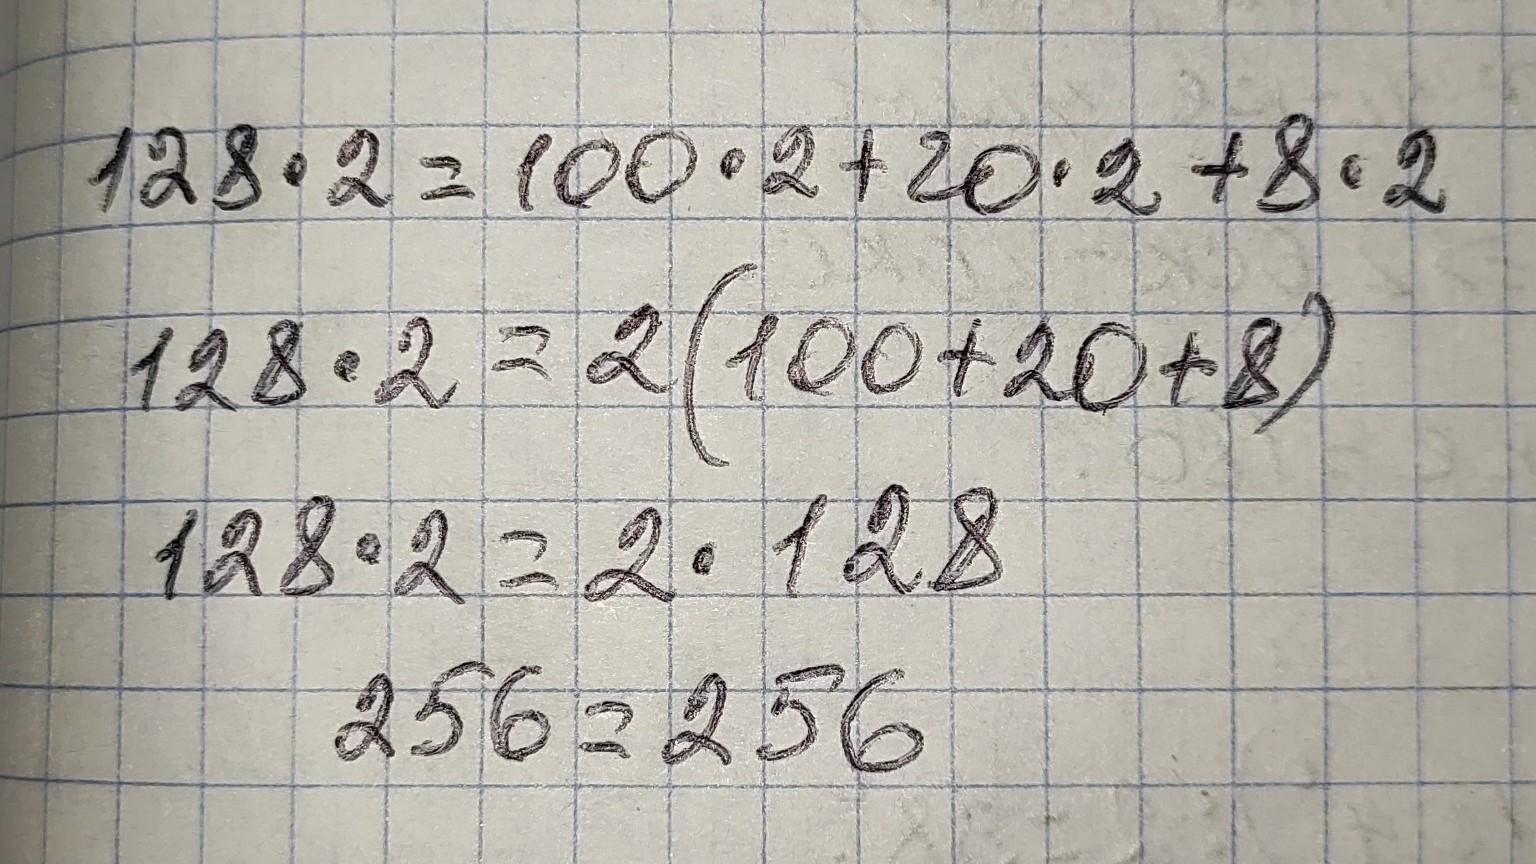 128·2=100·2+20·2+8·2
128·2=2(100+20+8)
128·2=2·128
256=256